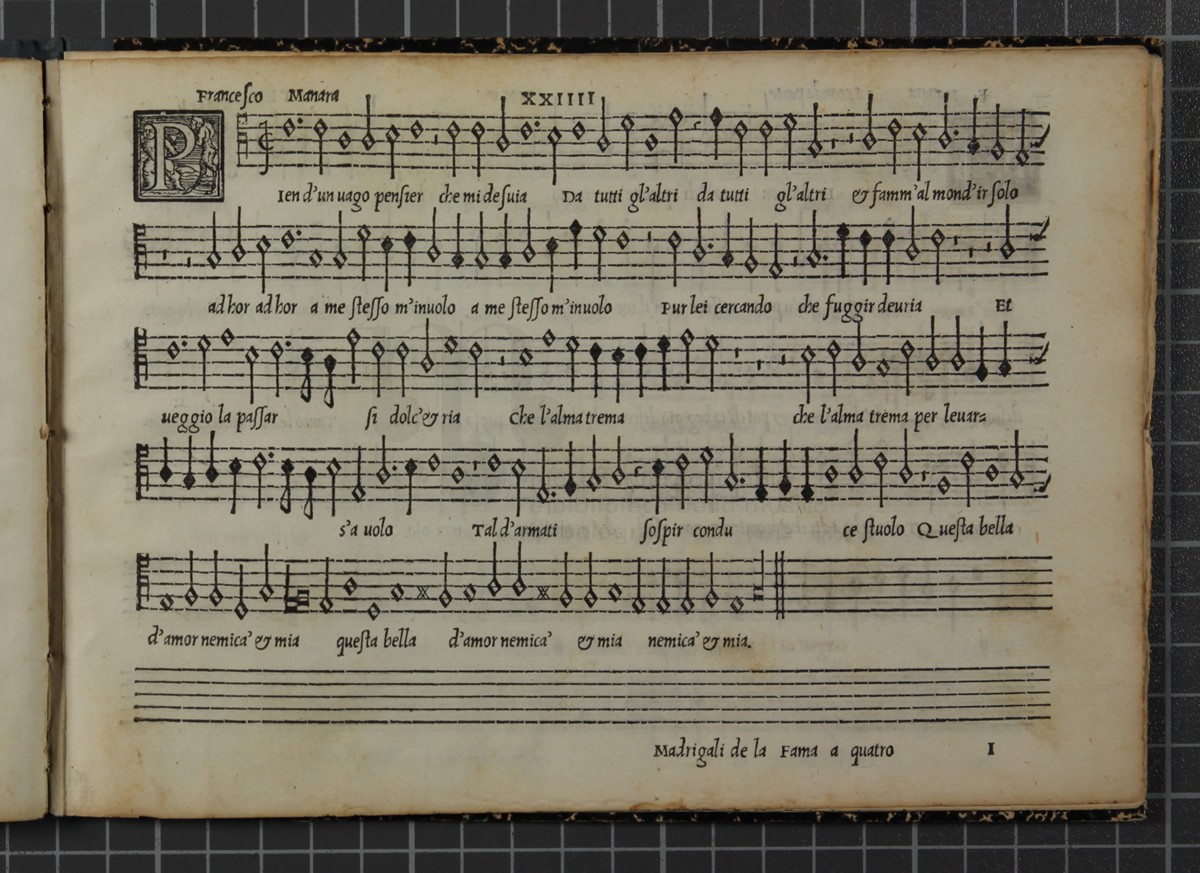 Francesco Manara XXIIII
P Ien d'un uago pensier che mi desuia Da tutti gl'altri da tutti gl'altri & famm'al mond'ir solo
ad hor ad hor a me stesso m'inuolo a me stesso m'inuolo Pur lei cercando che fuggir deuria Et
ueggio la passar si dolc'& ria Che l'alma trema che l'alma trema per leuar=
s'a uolo Tal d'armati sospir condu ce stuolo Questa bella
d'amor nemica' & mia questa bella d'amor nemica' & mia nemica' & mia.
Madrigali de la Fama a quatro I